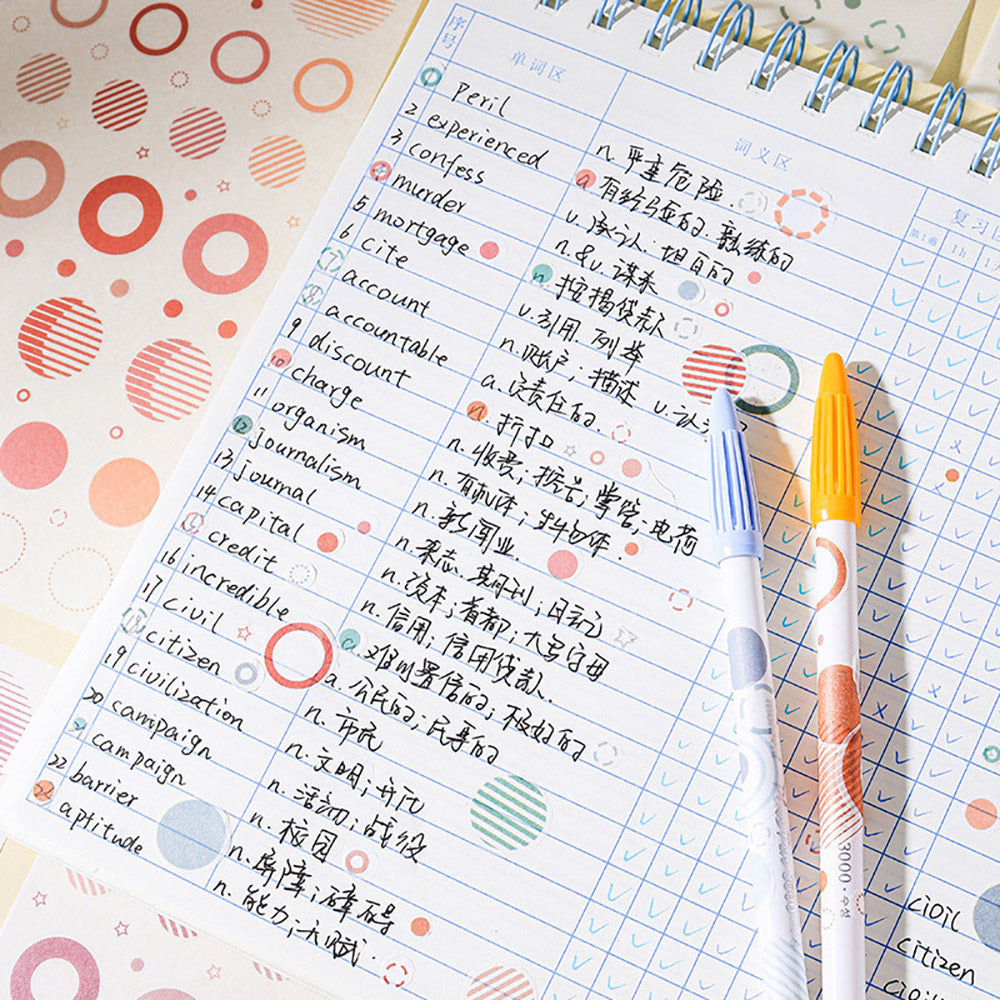 序号 单词区 词义区 复习
第1遍 1h
1 peril n. 严重危险.
2 experienced a. 有经验的.熟练的
3 confess v. 承认.坦白的
4 murder n.&v. 谋杀
5 mortgage n. 按揭贷款
6 cite v. 引用.列举
7 account n. 账户;描述 v. 认
8 accountable a. 负责任的.
9 discount n. 折扣
10 charge n. 收费;指控;掌管;电荷
11 organism n. 有机体;生物体.
12 journalism n. 新闻业.
13 journal n. 杂志.期刊;日记
14 capital n. 资本;首都;大写字母
15 credit n. 信用;信用贷款.
16 incredible a. 难以置信的;极好的
17 civil a. 公民的;民事的
18 citizen n. 市民
19 civilization n. 文明;开化
20 campaign n. 活动;战役
campaign n. 校园
22 barrier n. 屏障;障碍
aptitude n. 能力;天赋.
3000
cioil
citizen